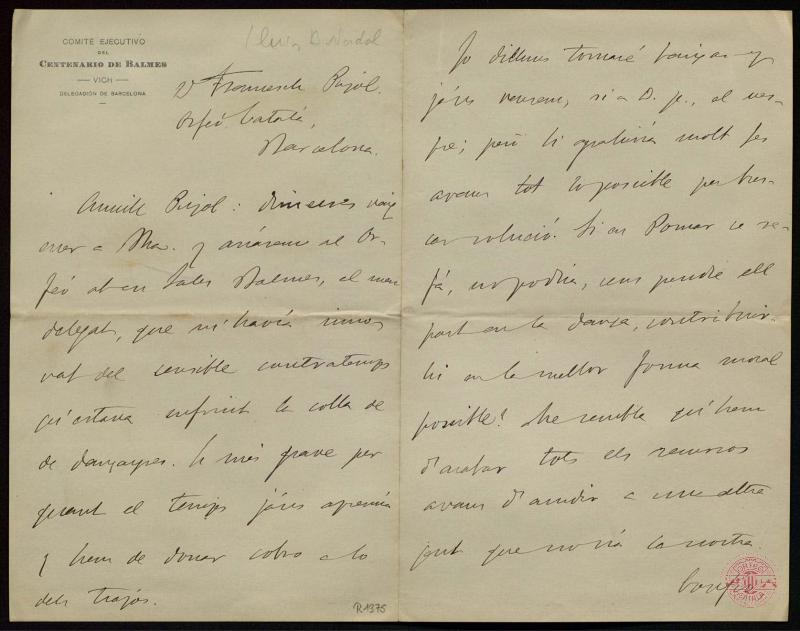 COMITÉ EJECUTIVO
DEL
CENTENARIO DE BALMES
VICH
DELEGACIÓN DE BARCELONA
Lluis B. Nadal
Dn Francesch Pujol.
Orfeó Català,
Barcelona.
Amich Pujol: dimecres vaig
ser a Bna. y anárem al Or-
feó ab en Sales Balmes, el meu
delegat, que m'havía infor
mat del sensible contratemps
qu'estava sufrint la colla de
de dançayres. Es més grave per
quant el temps já'ns apremía
y hem de donar cobro a lo
dels trajos.
Jo dilluns tornaré
já'ns veurem, si a D. p., al ves-
pre; però li agrahiría molt fes
avans tot lo possible per bus-
car solució. Si en Pomar se re-
fá, no podría, sens pendre ell
part en la dança, contribuir-
hi en la mellor forma moral
possible? Me sembla qu'hem
d'acabar tots els recursos
avans d'acudir a una altra
gent que no sía la nostra.
R.1375
ORFEÓ CATALÀ